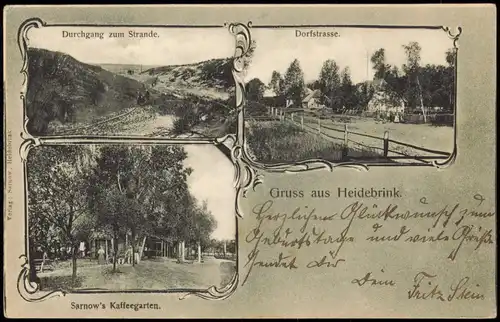 Durchgang zum Strande.
Dorfstrasse.
Verlag: Sarnow, Heidebrink.
Gruss aus Heidebrink.
Herzlichen Glückwunsch zum
Geburtstage und viele Grüße
sendet Dir
Dein Fritz Stein
Sarnow's Kaffeegarten.